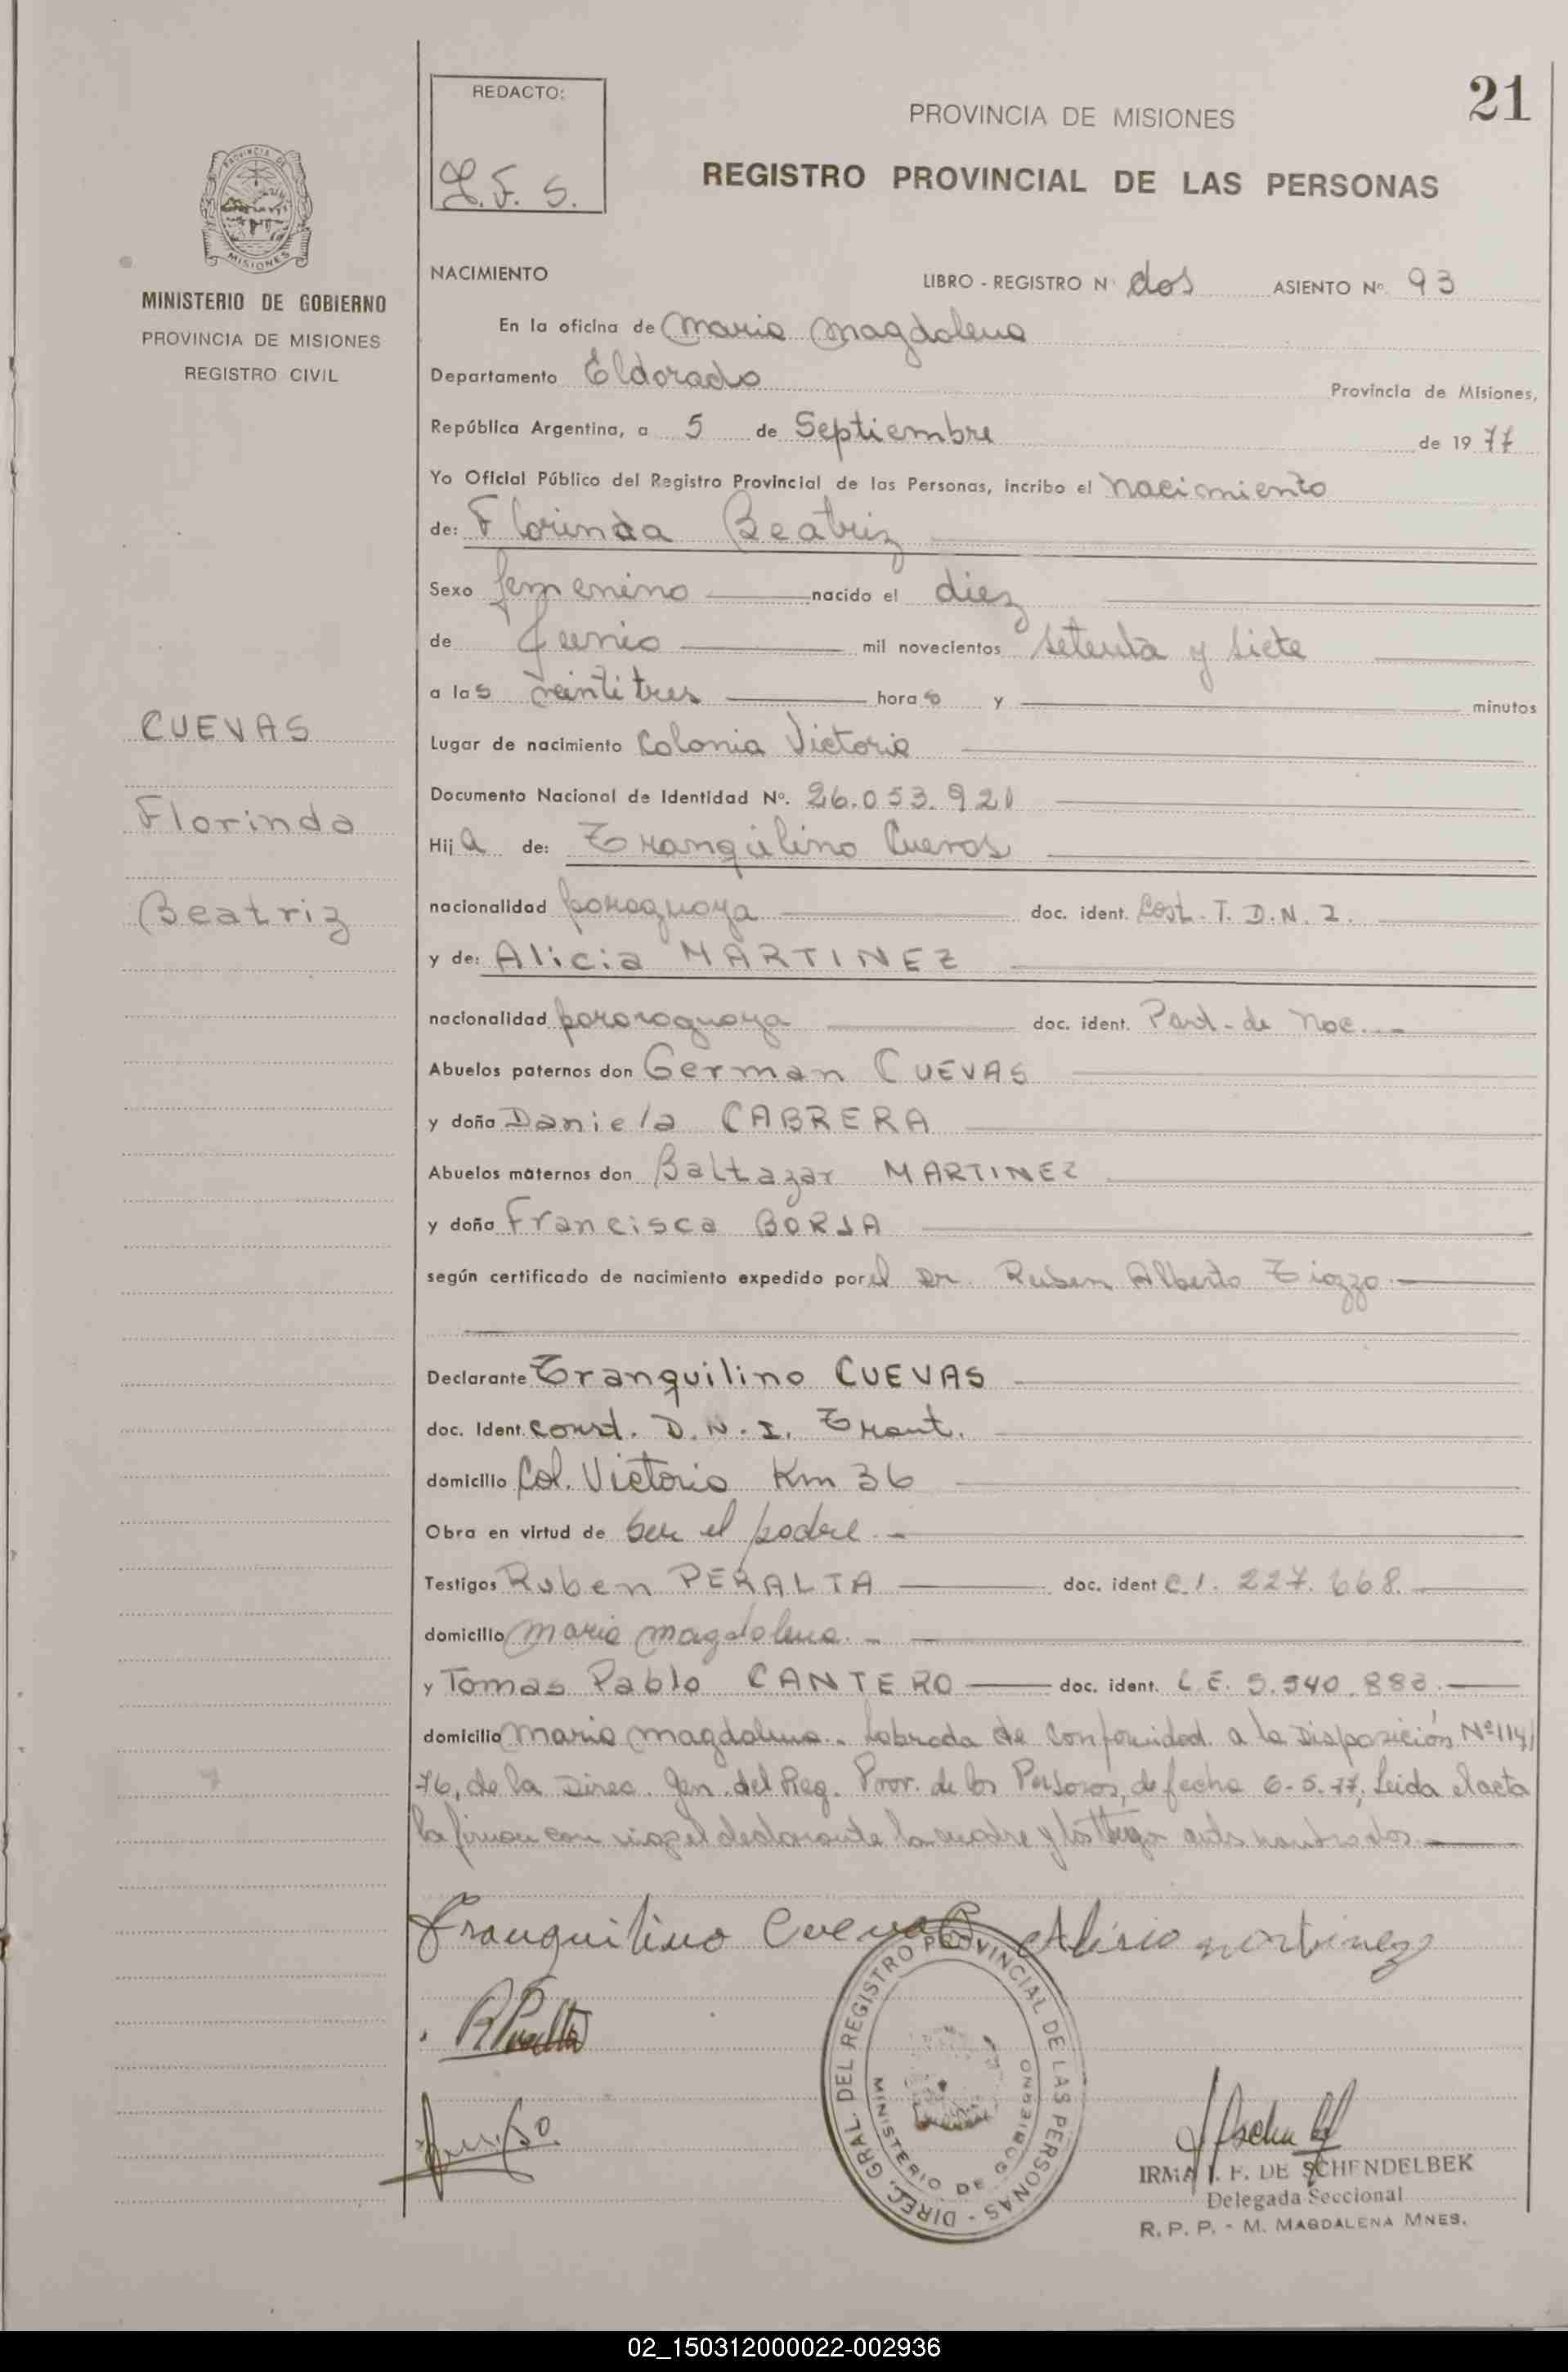 21
REDACTO:
PROVINCIA DE MISIONES
REGISTRO PROVINCIAL DE LAS PERSONAS
PROVINCIA DE
MISIONES
MINISTERIO DE GOBIERNO
PROVINCIA DE MISIONES
REGISTRO CIVIL
CUEVAS
Florinda
Beatriz
NACIMIENTO LIBRO - REGISTRO N° dos ASIENTO N° 93
En la oficina de Maria Magdalena
Departamento Eldorado Provincia de Misiones,
República Argentina, a 5 de Septiembre de 1977
Yo Oficial Público del Registro Provincial de las Personas, incribo el nacimiento
de: Florinda Beatriz
Sexo femenino nacido el diez
de Junio mil novecientos setenta y siete
a las veintitres horas y minutos
Lugar de nacimiento Colonia Victoria
Documento Nacional de Identidad N°. 26.053.921
Hija de: Tranquilino Cuevas
nacionalidad paraguaya doc. ident. Cost. T. D.N.I.
y de: Alicia MARTINEZ
nacionalidad pararaguaya doc. ident. Part. de Nac.
Abuelos paternos don German CUEVAS
y doña Daniela CABRERA
Abuelos maternos don Baltazar MARTINEZ
y doña Francisca BORJA
según certificado de nacimiento expedido por el Dr. Ruben Alberto Tiozzo.
Declarante Tranquilino CUEVAS
doc. Ident. Const. D.N.I. Tramt.
domicilio Col. Victoria Km 36
Obra en virtud de ser el padre.
Testigos Ruben PERALTA doc. ident C.I. 227.668.
domicilio Maria Magdalena.
y Tomas Pablo CANTERO doc. ident. L.E. 5.540.882.
domicilio Maria Magdalena. Labrada de conformidad a la Disposición Nº 114/
76, de la Direc. Gen. del Reg. Prov. de las Personas, de fecha 6-5-77, Leida el acta
la firman con migo el declarante la madre y los testigos antes nombrados.
Tranquilino Cuevas Alicia martinez
DIREC. GRAL. DEL REGISTRO PROVINCIAL DE LAS PERSONAS -
MINISTERIO DE GOBIERNO
IRMA I. F. DE SCHENDELBEK
Delegada Seccional
R. P. P. - M. MAGDALENA MNES.
02_150312000022-002936